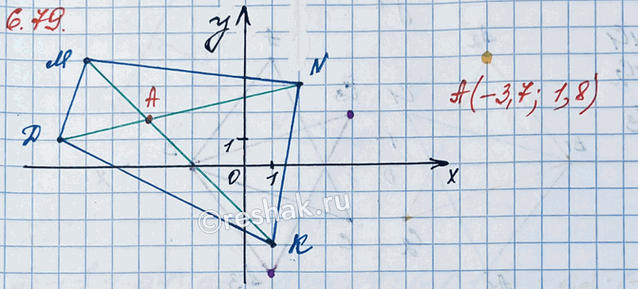 6.79.
y
M
N
A
A(-3,7; 1,8)
D
1
0 1 x
K
©reshak.ru